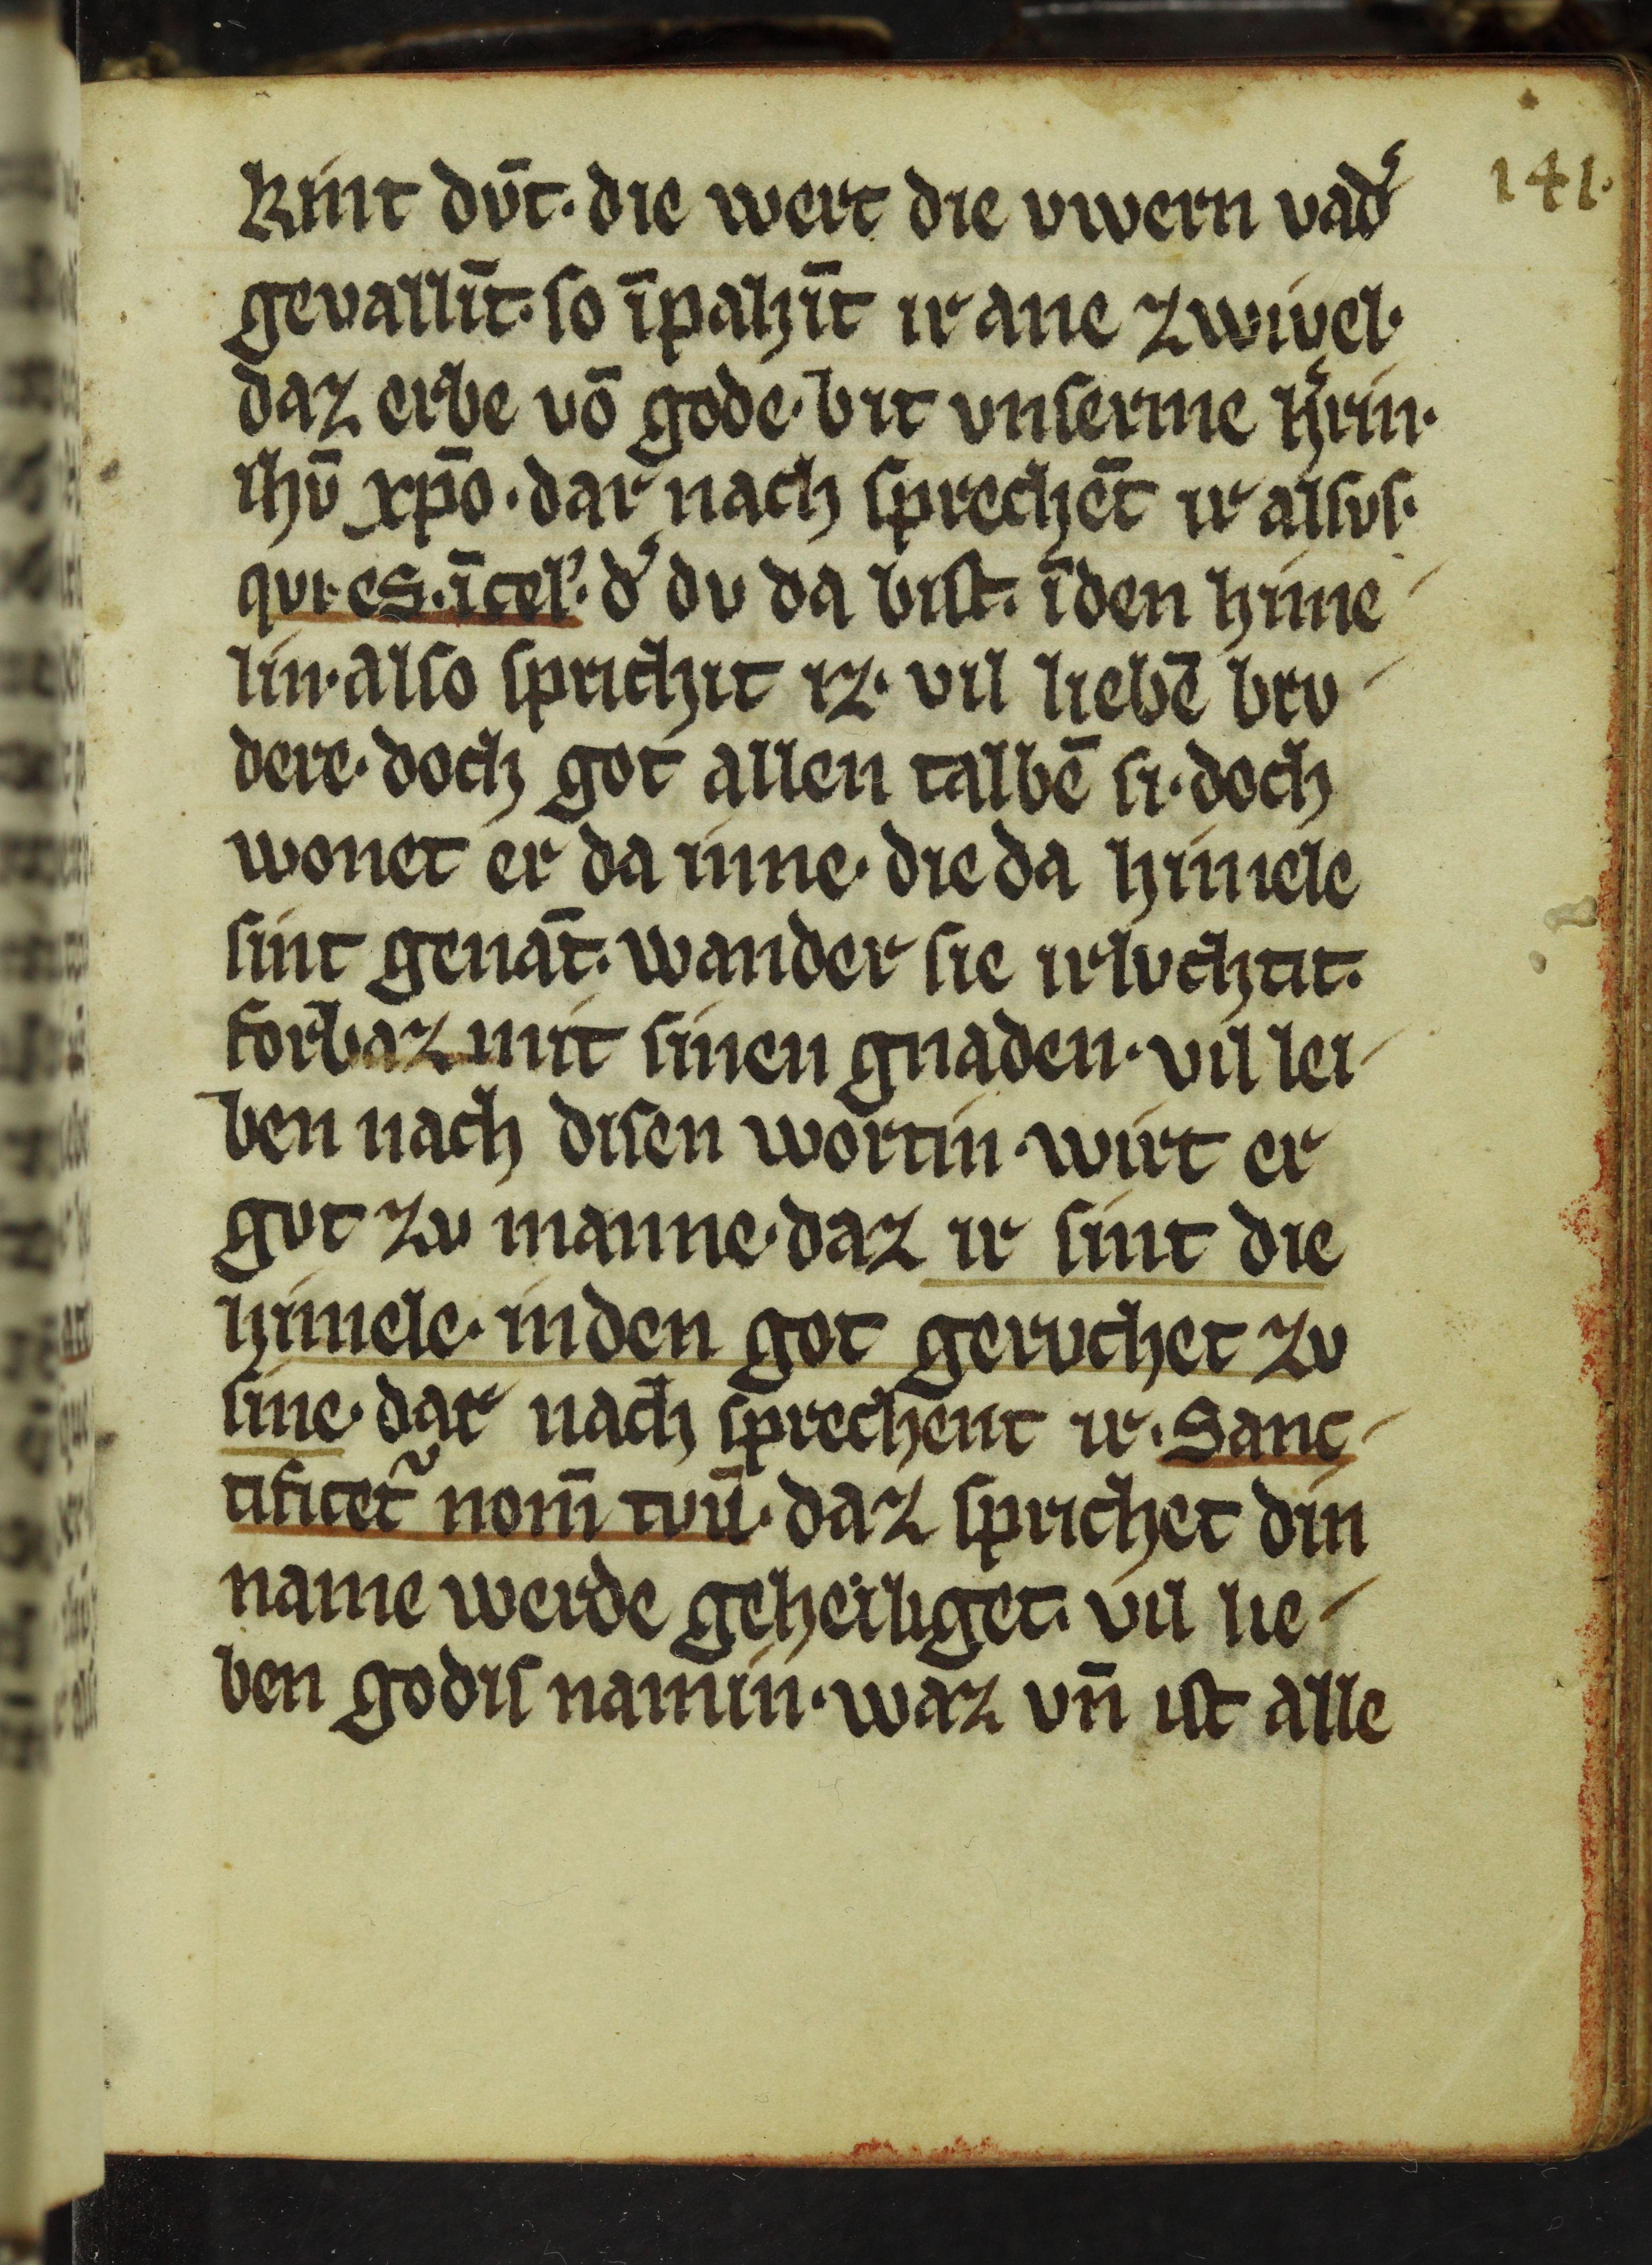 141.
kint dv̄t· die wert die vwern vad᷒
gevallīt· so īpahīt ir ane zwiuel·
daz erbe vō gode· bit vnserme h᷒rin·
ihū xp̄o· dar nach sprechēt ir alsus·
qui·es·ī cel᷒· d᷒ du da bist· ī den hime
lin· also sprichit iz· vil liebē bru
dere· doch got allen talbē si· doch
wonet er da inne· die da himele
sint genāt· wander sie irluchtit·
forbaz mit sinen gnaden· vil lei
ben nach disen wortin· wirt er
gut zu manne· daz ir sint die
himele· in den got geruchet zu
sine· dar nach sprechent ir· Sanc
tificet᷒ nom̄ tuū· daz sprichet din
name werde geheiliget· vil lie
ben godis namin· waz vn̄ ist alle